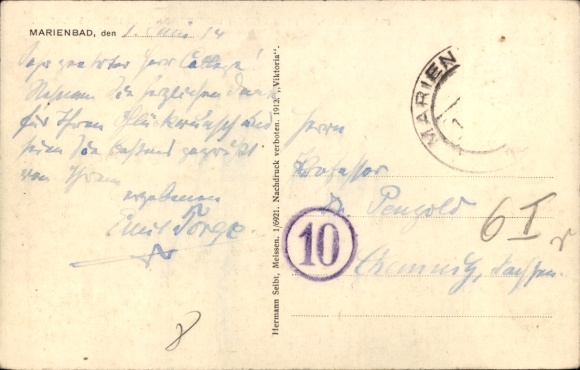 MARIENBAD, den 1. Juni 14
Sehr geehrter Herr College!
Nehmen Sie herzlichen Dank
für Ihren Glückwunsch
seien Sie bestens gegrüßt
von Ihrem
ergebenen
Emil Torge.
8
Hermann Seibt, Meissen. 1/6921. Nachdruck verboten. 1912. „Viktoria".
MARIEN
Herrn
Professor
Dr. Penzold
Chemnitz, Sachsen.
10
6 I